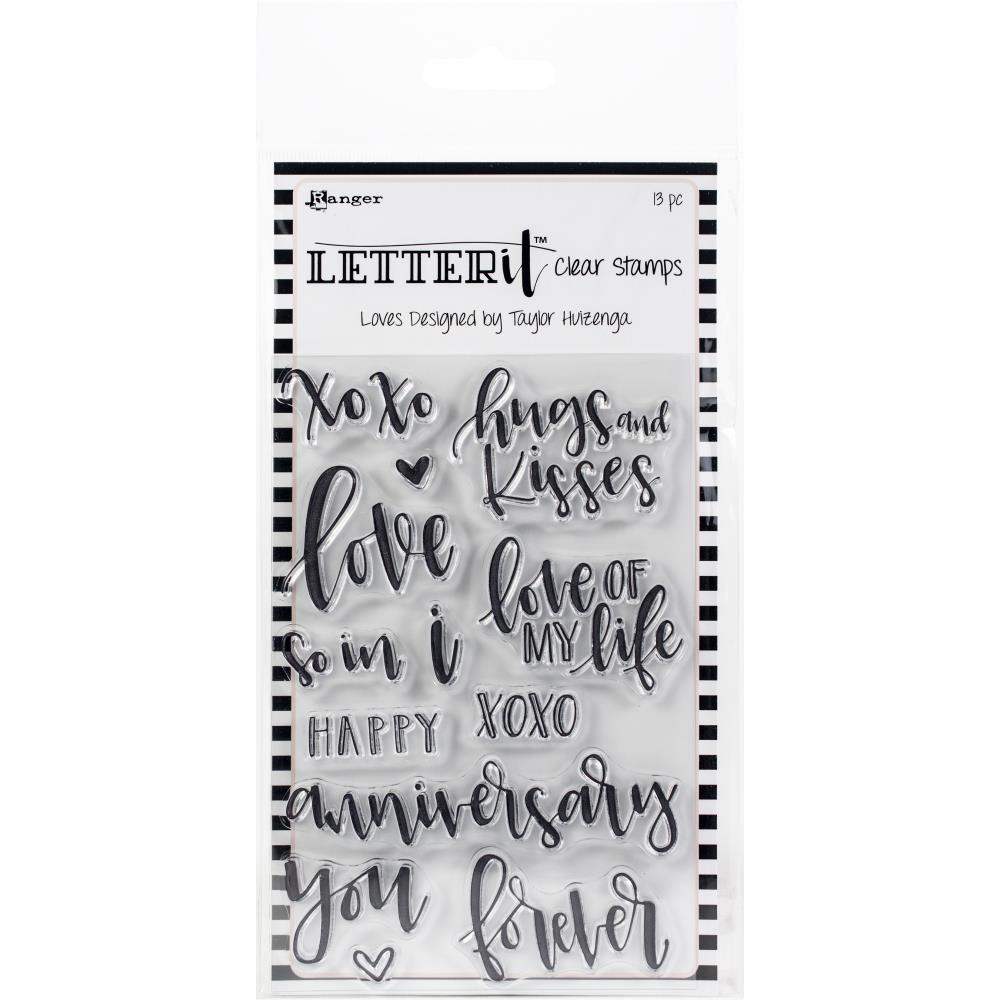 Ranger
13 pc
LETTERit™ Clear Stamps
Loves Designed by Taylor Huizenga
xoxo
hugs and
kisses
love
love OF
MY life
so in i
HAPPY
XOXO
anniversary
you
forever